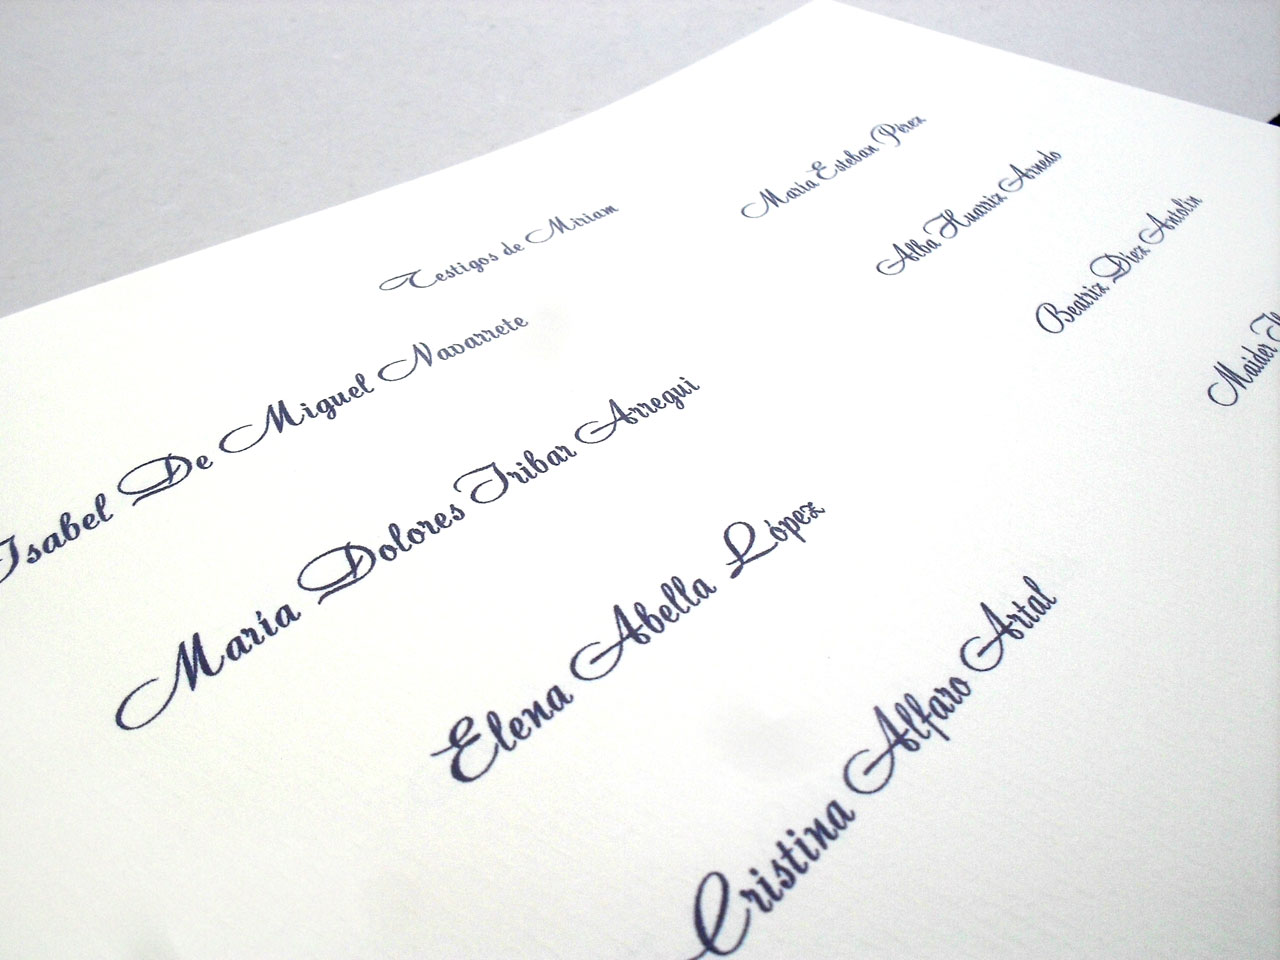 Testigos de Miriam
Isabel De Miguel Navarrete
María Dolores Iribar Arregui
Elena Abella López
Cristina Alfaro Artal
María Esteban Pérez
Alba Huarriz Arnedo
Beatriz Díez Antolín
Maider